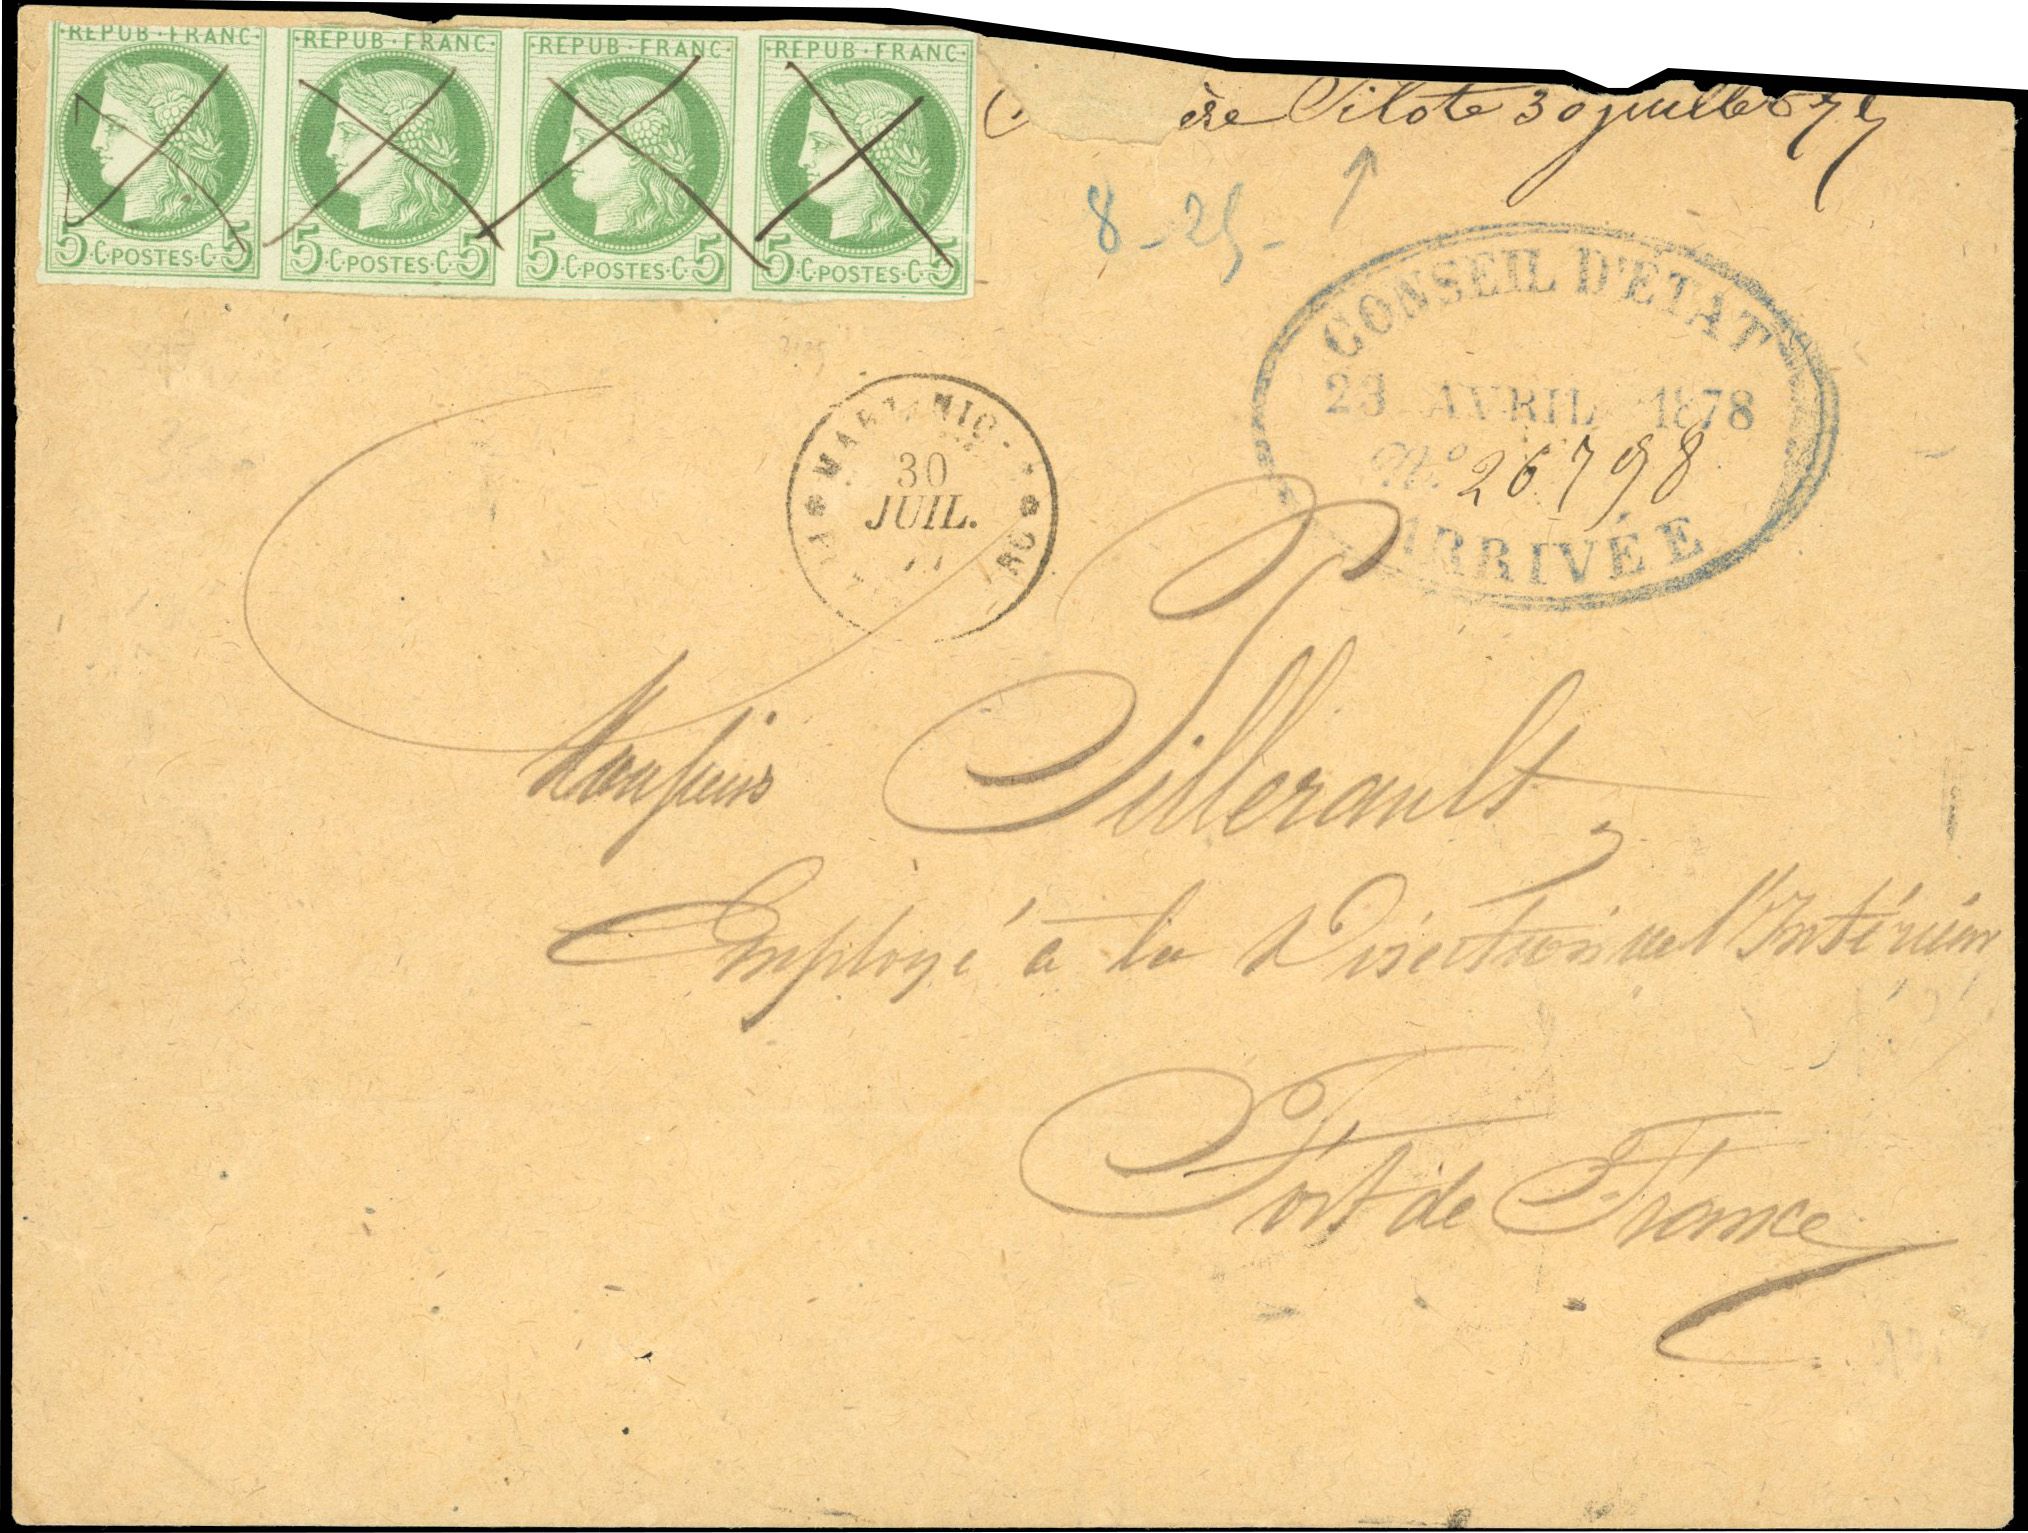 REPUB·FRANC· ·REPUB·FRANC· ·REPUB·FRANC· ·REPUB·FRANC·
5·C·POSTES·C·5 5·C·POSTES·C·5 5·C·POSTES·C·5 5·C·POSTES·C·5
ère Pilote 30 juillet
8-25-
CONSEIL D'ÉTAT
23 AVRIL 1878
No 26798
ARRIVÉE
30
JUIL.
Monsieur Pillerault,
Employé à la Direction de l'Intérieur
Fort de France